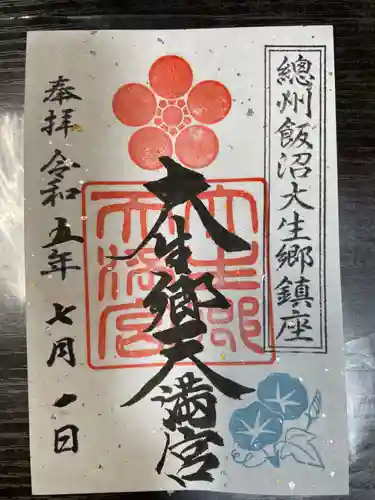 總州飯沼大生郷鎮座
大生郷天満宮
大生郷
天満宮
奉拝 令和五年七月一日